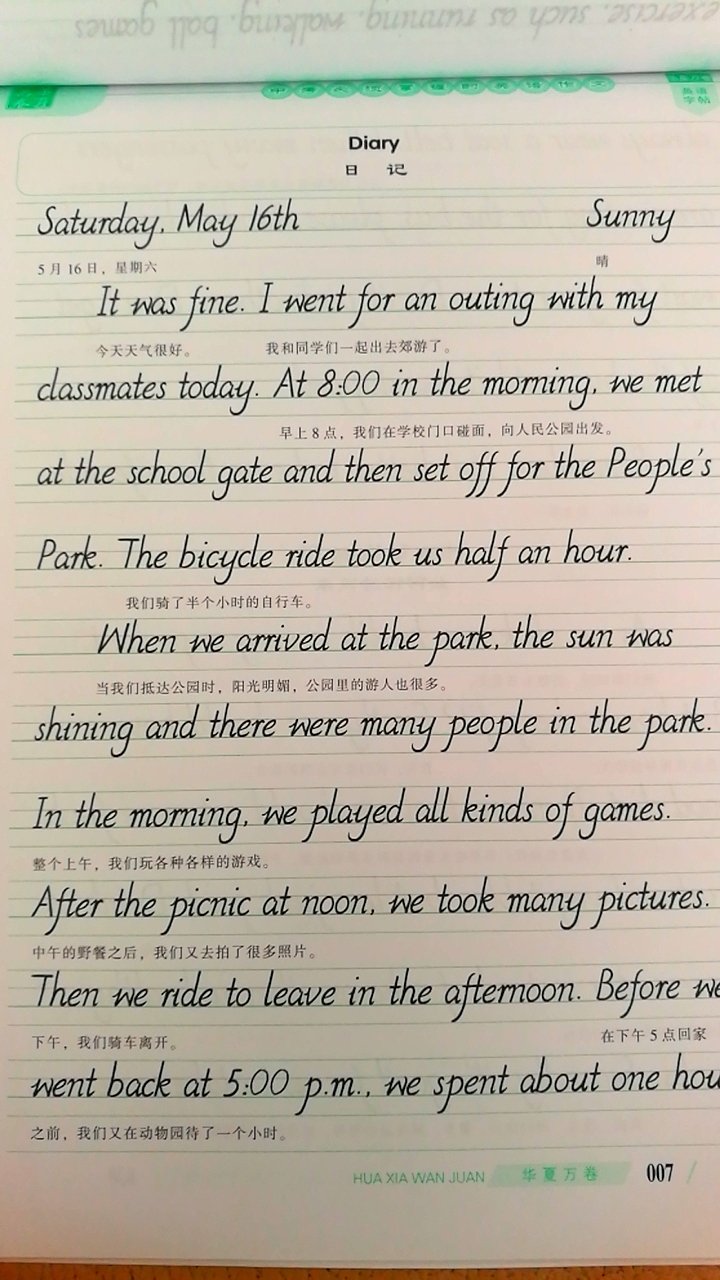 exercise, such as running, walking, ball games
中考必须掌握的英语作文
英语
字帖
Diary
日 记
Saturday, May 16th Sunny
5月16日，星期六 晴
It was fine. I went for an outing with my
今天天气很好。 我和同学们一起出去郊游了。
classmates today. At 8:00 in the morning, we met
早上8点，我们在学校门口碰面，向人民公园出发。
at the school gate and then set off for the People's
Park. The bicycle ride took us half an hour.
我们骑了半个小时的自行车。
When we arrived at the park, the sun was
当我们抵达公园时，阳光明媚，公园里的游人也很多。
shining and there were many people in the park.
In the morning, we played all kinds of games.
整个上午，我们玩各种各样的游戏。
After the picnic at noon, we took many pictures.
中午的野餐之后，我们又去拍了很多照片。
Then we ride to leave in the afternoon. Before we
下午，我们骑车离开。 在下午5点回家
went back at 5:00 p.m., we spent about one hou
之前，我们又在动物园待了一个小时。
HUA XIA WAN JUAN 华夏万卷 007